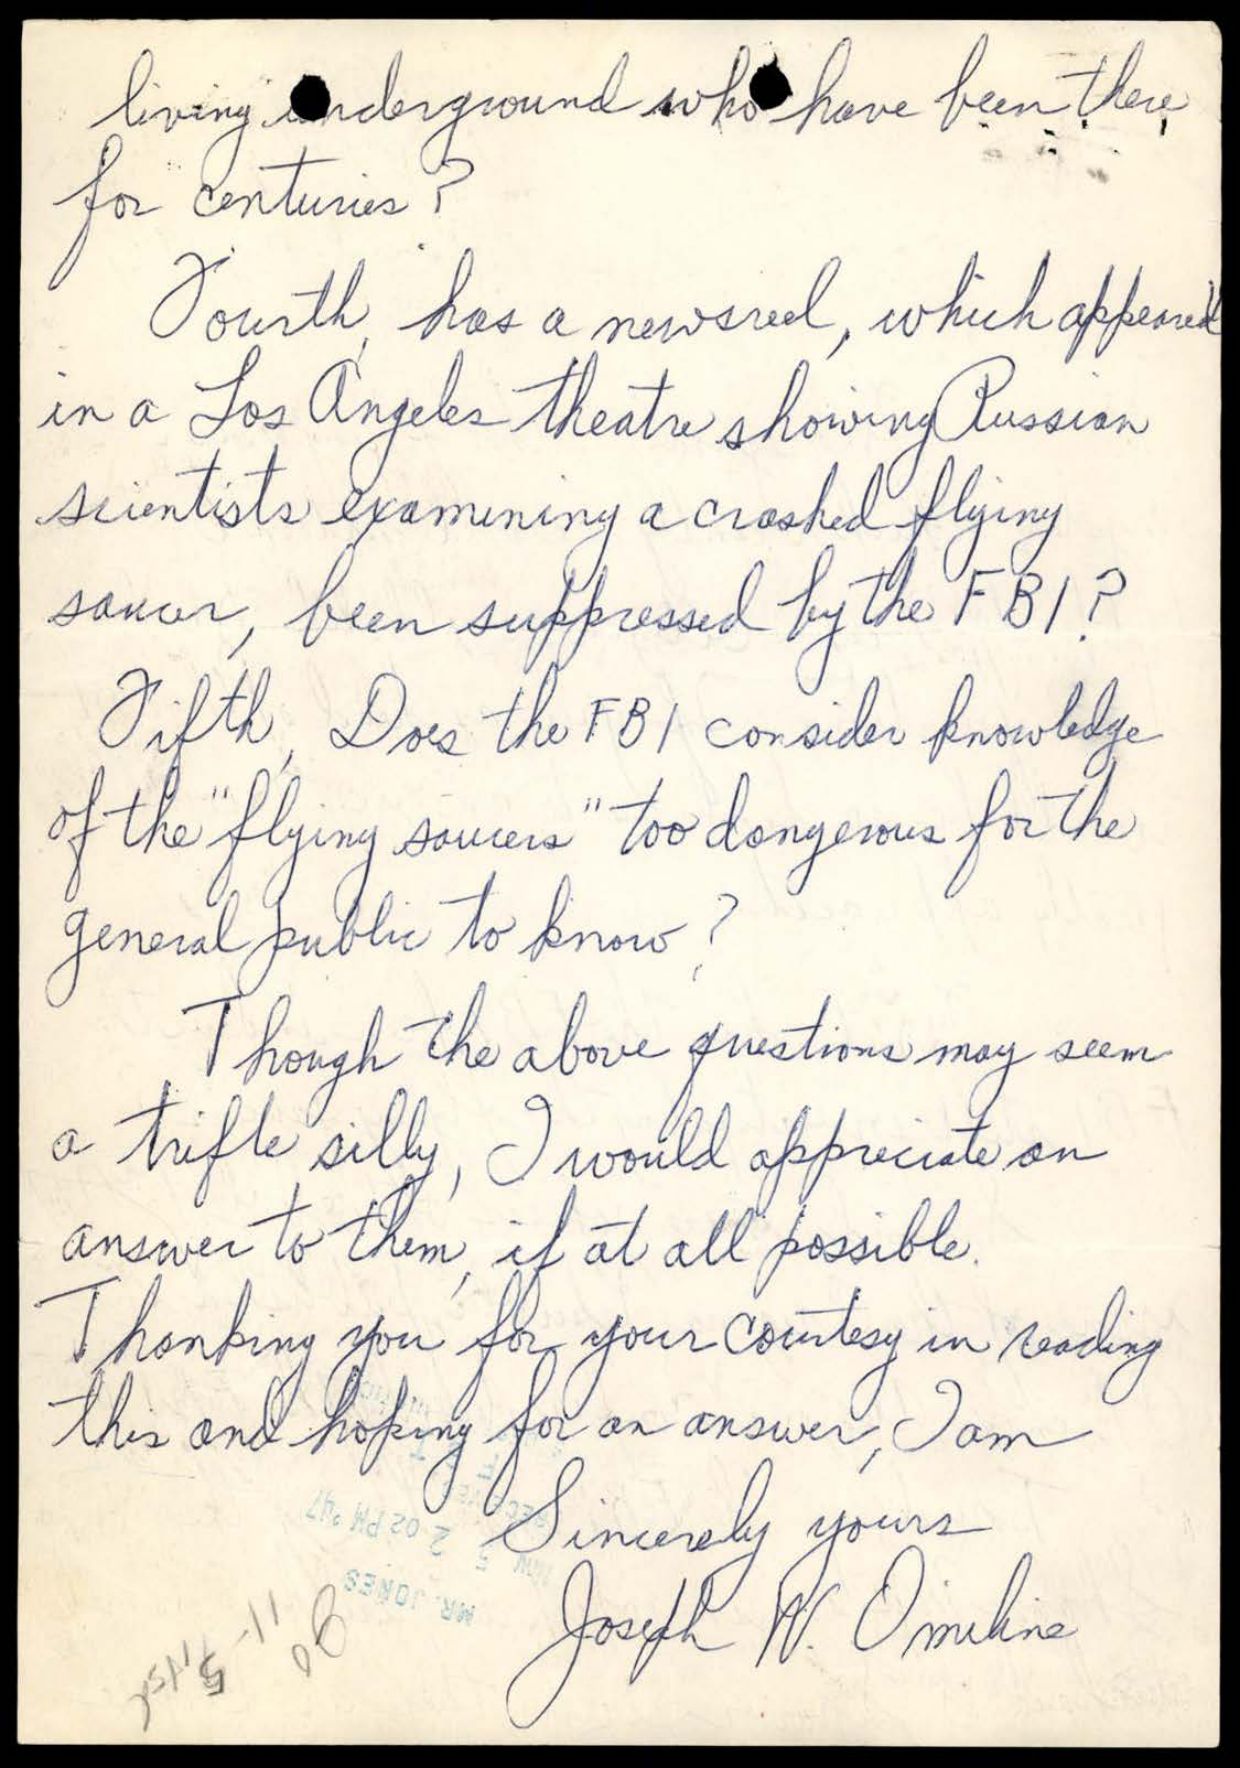 living underground who have been there
for centuries?
Fourth, has a newsreel, which appeared
in a Los Angeles theatre showing Russian
scientists examining a crashed flying
saucer, been suppressed by the FBI?
Fifth, Does the FBI consider knowledge
of the "flying saucers" too dangerous for the
general public to know?
Though the above questions may seem
a trifle silly, I would appreciate an
answer to them, if at all possible.
Thanking you for your courtesy in reading
this and hoping for an answer, I am
Sincerely yours
Joseph W.
MR. JONES
NOV 5 2 02 PM '47
RECEIVED
11-5